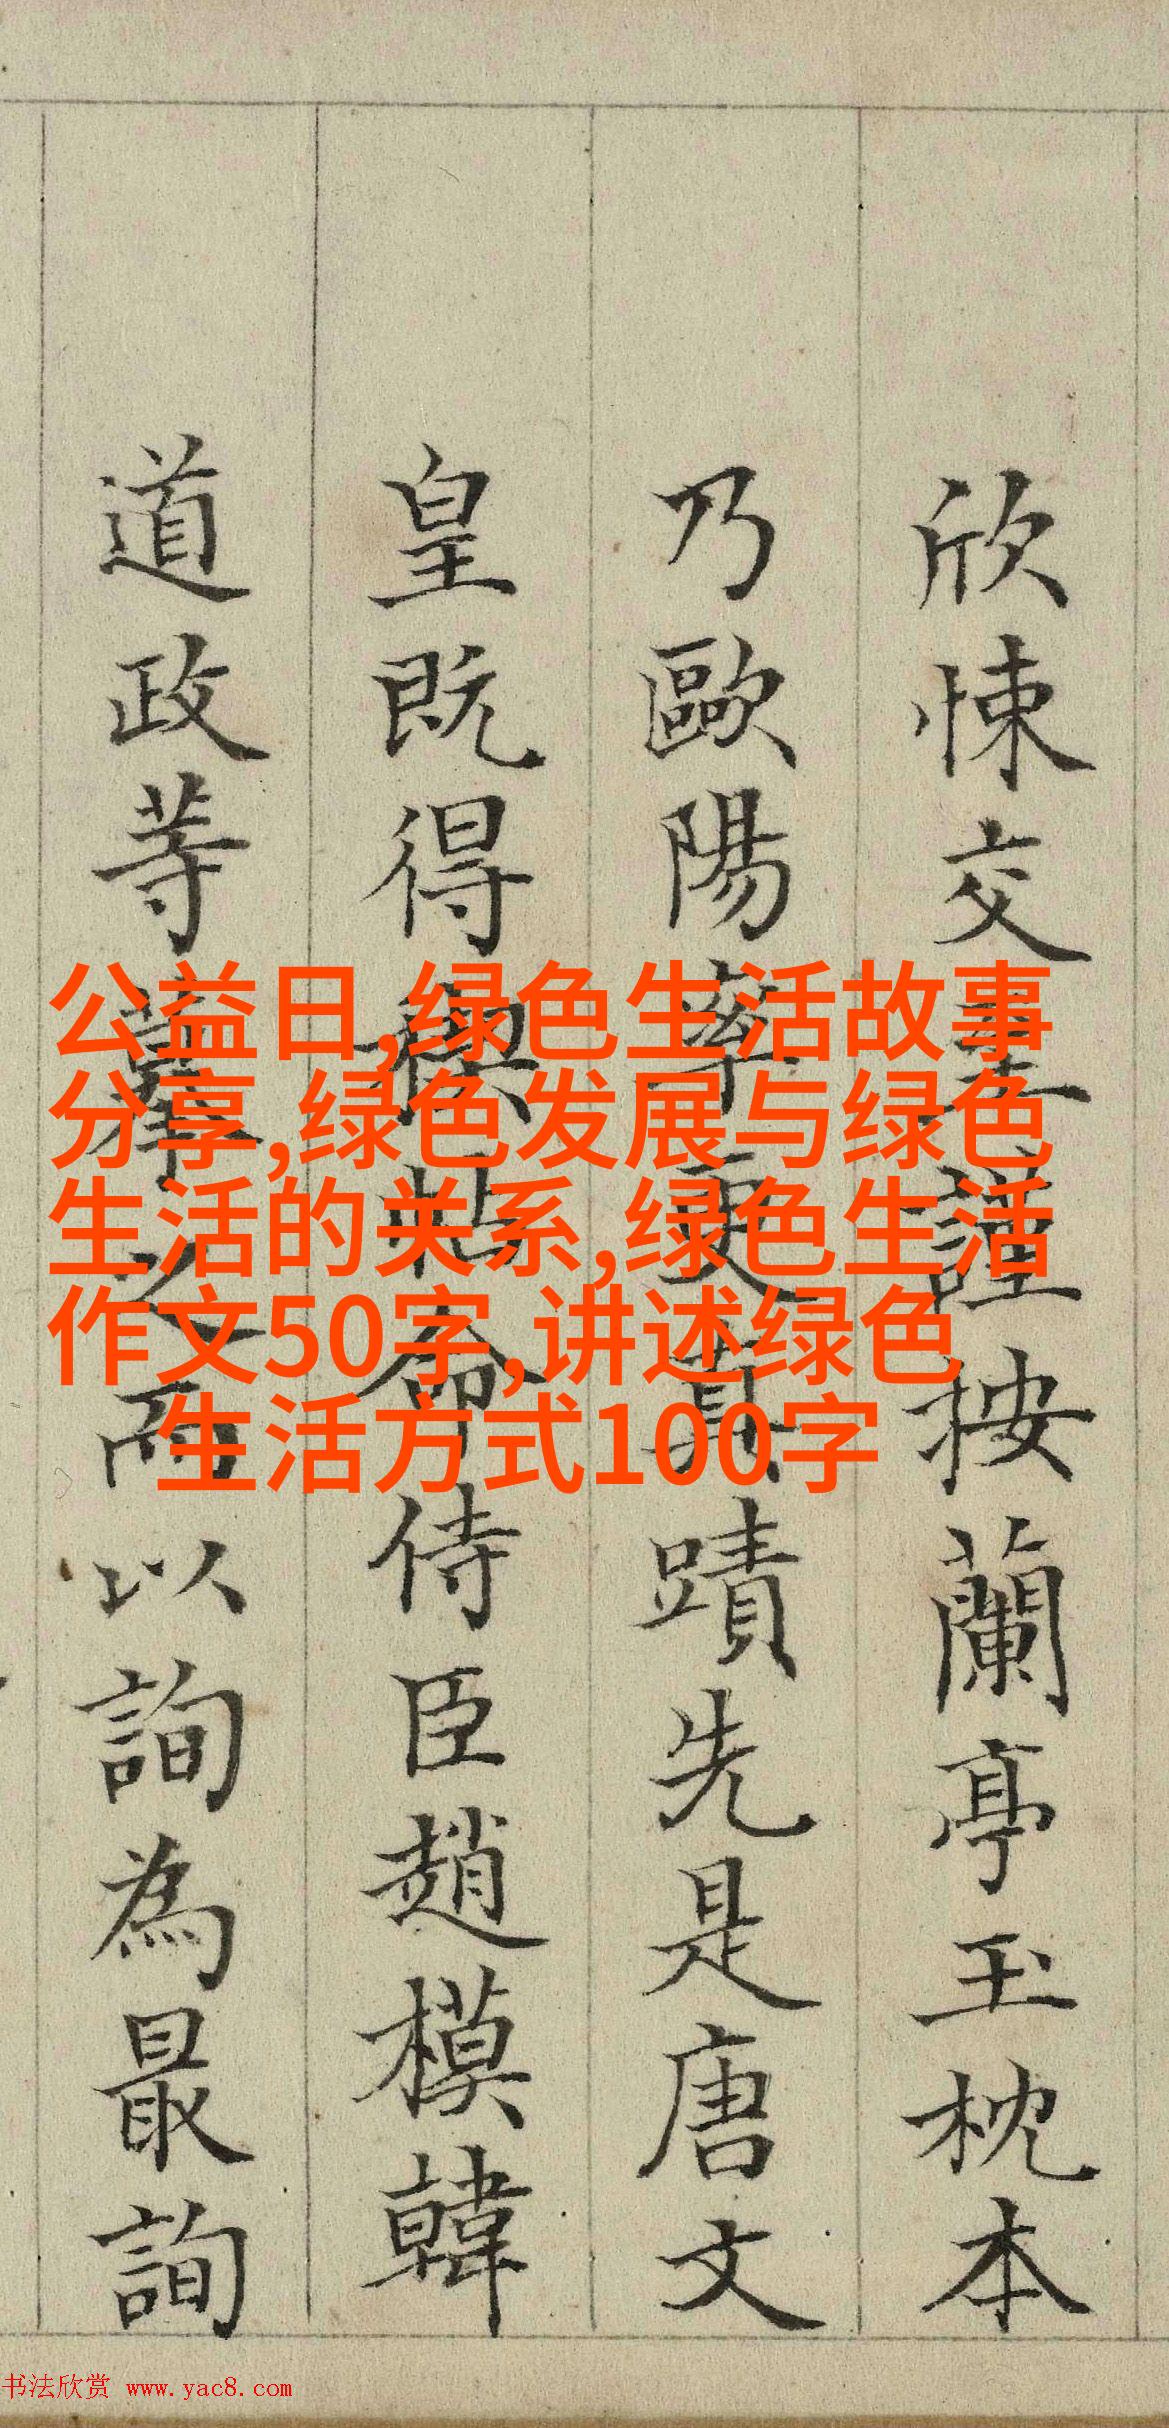 欣悚交至謹按蘭亭玉枕本
乃歐陽率更真蹟先是唐文
皇既得禊帖命侍臣趙模韓
道政等摹之而以詢為最詢
公益日,绿色生活故事
分享,绿色发展与绿色
生活的关系,绿色生活
作文50字,讲述绿色
生活方式100字
书法欣赏 www.yac8.com